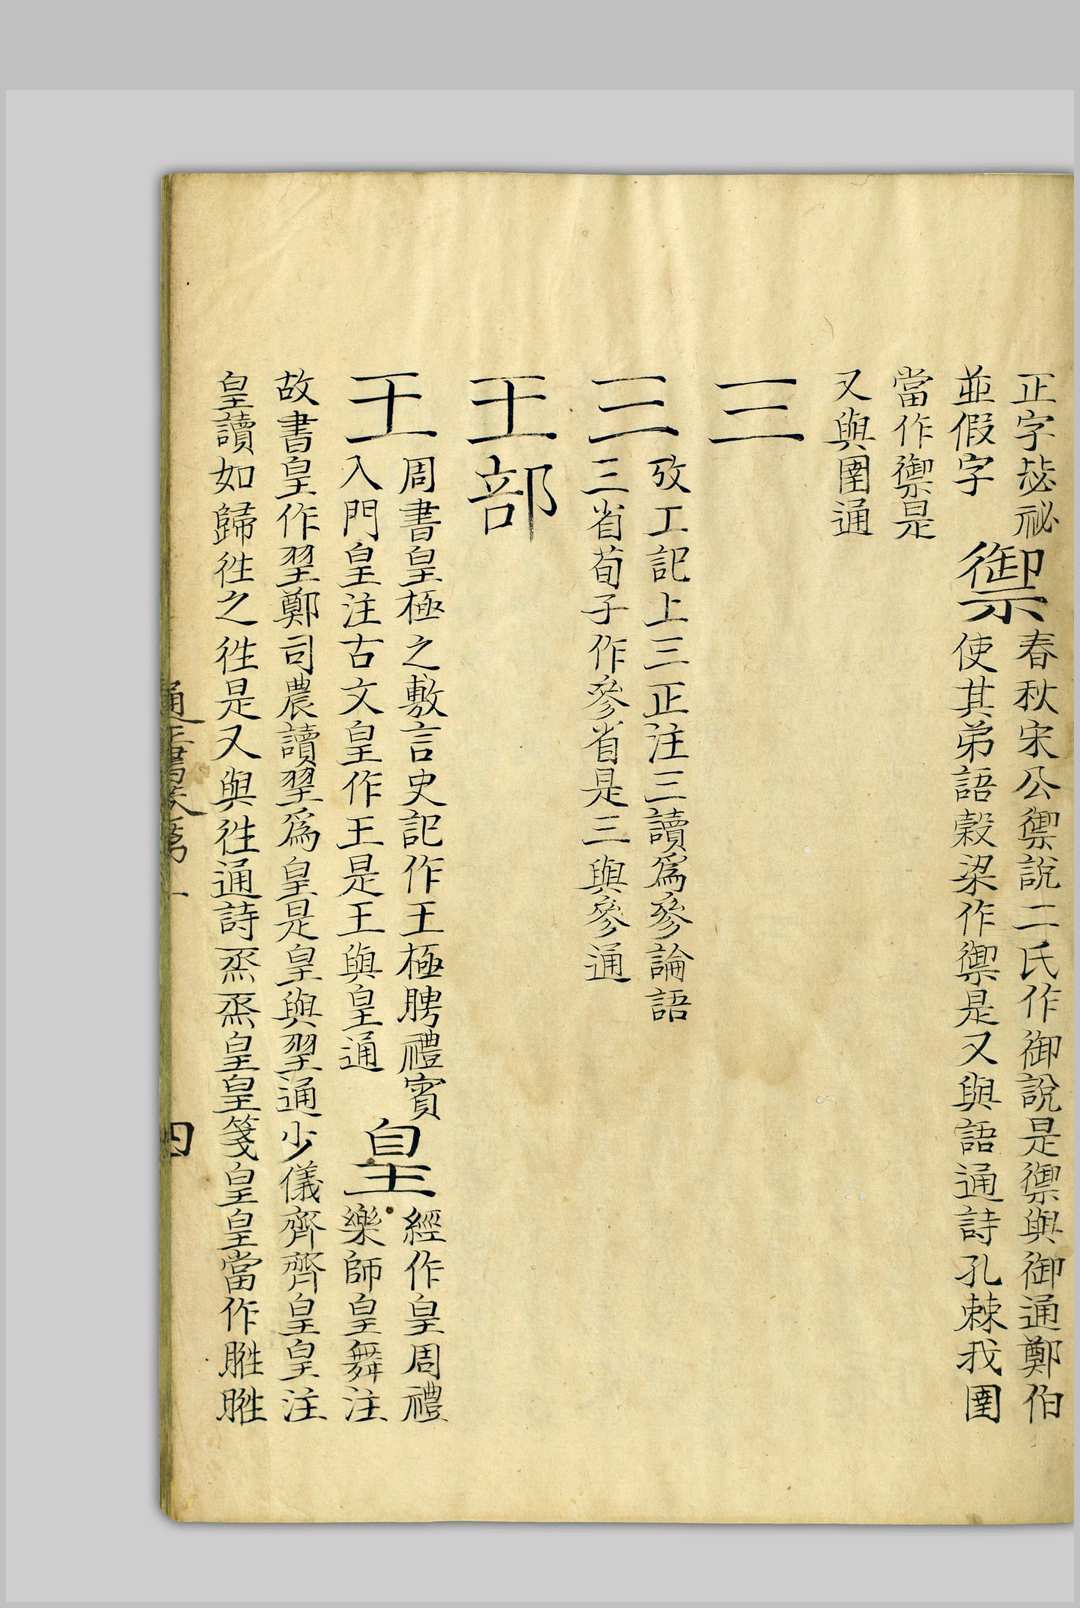 正字毖祕
並假字
禦
春秋宋公禦說二氏作御說是禦與御通鄭伯
使其弟語穀梁作禦是又與語通詩孔棘我圉
當作禦是
又與圉通
三
三
攷工記上三正注三讀爲參論語
三省荀子作參省是三與參通
王部
王
周書皇極之敷言史記作王極聘禮賓
入門皇注古文皇作王是王與皇通
皇
經作皇周禮
樂師皇舞注
故書皇作䍿鄭司農讀䍿爲皇是皇與䍿通少儀齊齊皇皇注
皇讀如歸徃之徃是又與徃通詩烝烝皇皇箋皇皇當作暀暀
四